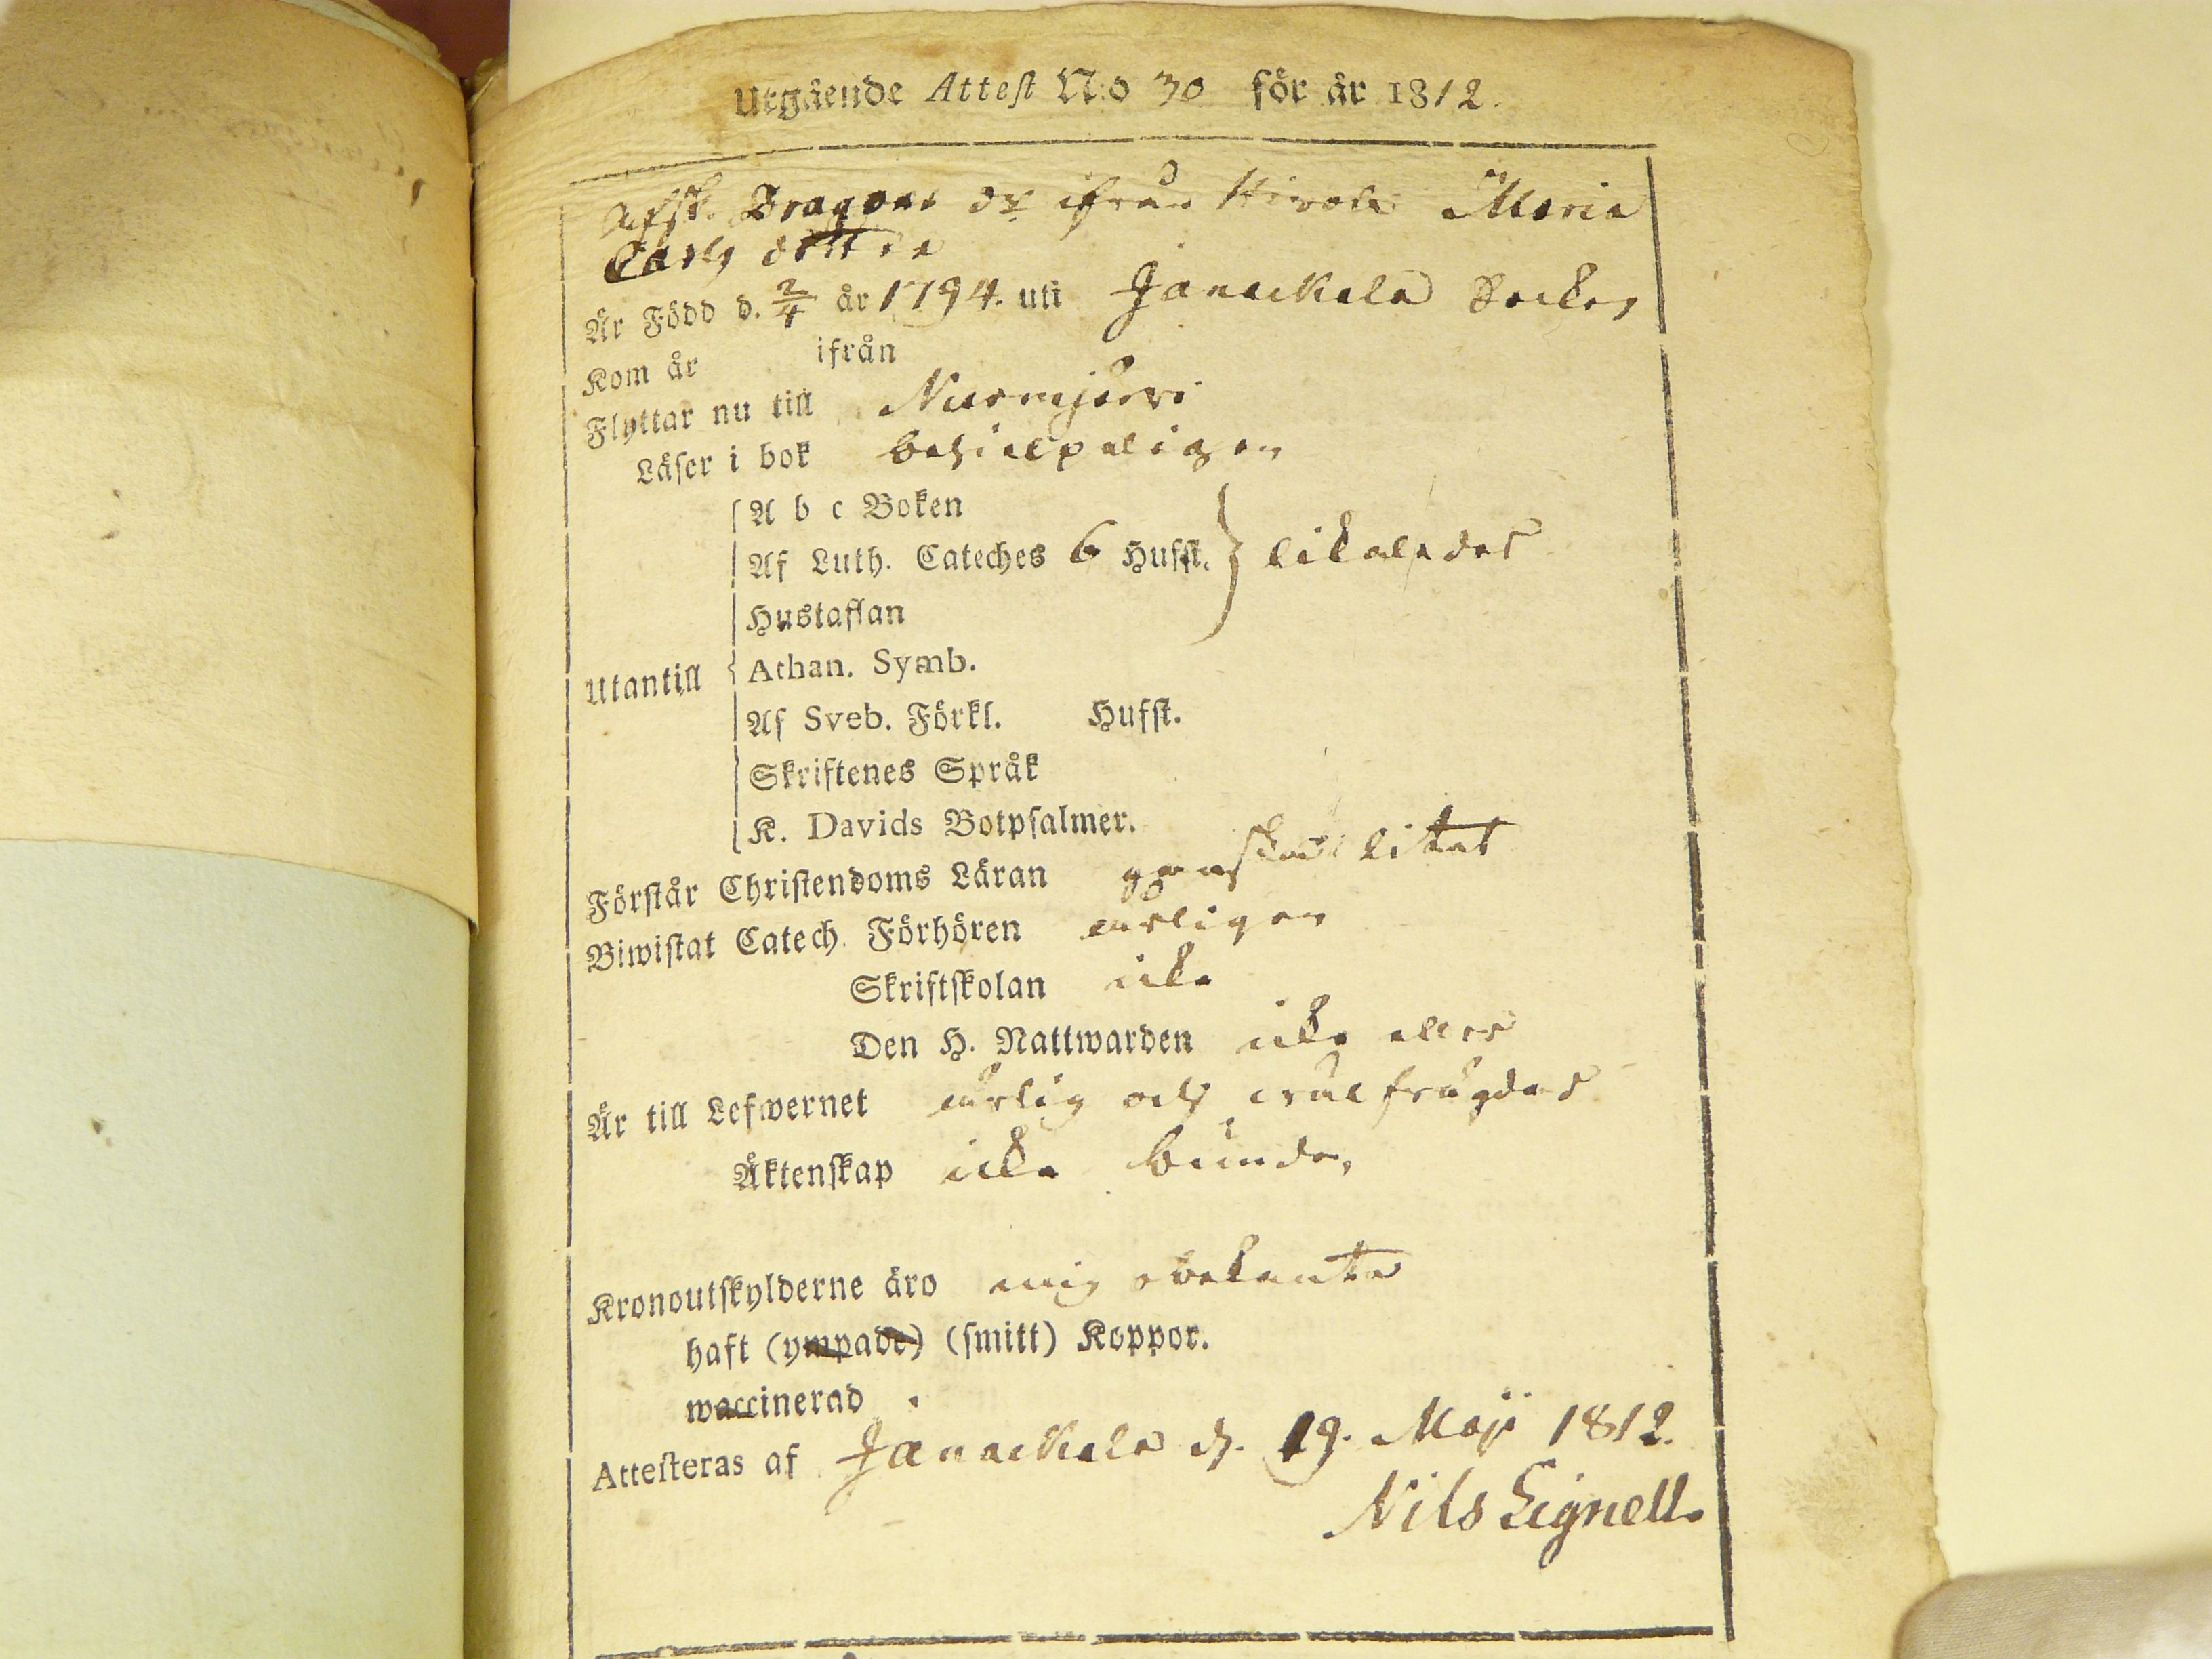 Utgående Attest N:o 30 för år 1812.
Afsk. Dragone dr ifrån Hirola Maria
Carls dotter
Är Född d. 2/4 år 1794. uti Janackala Socken
Kom år ifrån
Flyttar nu till Nurmjervi
Läser i bok behielpeligen
A b c Boken
Af Luth. Cateches 6 Hufst. likaledes
Hustaflan
Utantill
Athan. Symb.
Af Sveb. Förkl. Hufst.
Skriftenes Språk
K. Davids Botpsalmer.
Förstår Christendoms Läran ganska litet
Biwistat Catech. Förhören årligen
Skriftskolan icke
Den H. Nattwarden icke eller
Är till Lefwernet ärlig och frägdad
Äktenskap icke bunden
Kronoutskylderne äro mig obekante
haft (ympade) (smitt) Koppor.
waccinerad
Attesteras af Janackala d. 19. Maji 1812.
Nils Lignell.